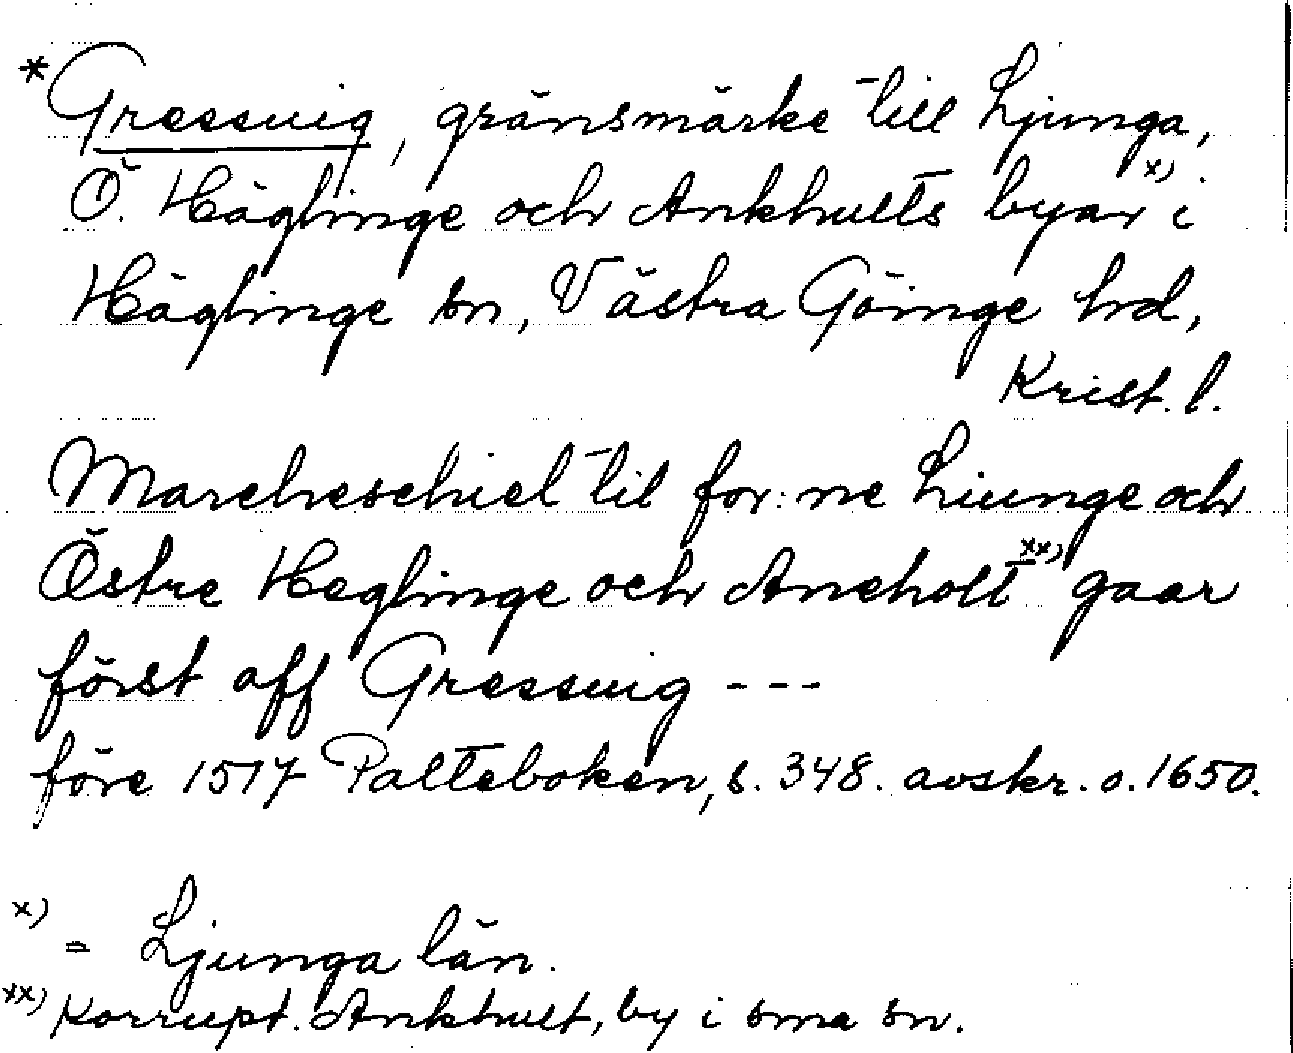 *Gressuig, gränsmärke till Ljunga,
Ö. Häglinge och Ankhults byar x) i
Häglinge sn, Västra Göinge hd,
Krist. l.
Marcheschiel til for:ne Liunge och
Östre Heglinge och Ancholt xx) gaar
först aff Gressuig ---
före 1517 Palteboken, s. 348. avskr. o. 1650.
x) = Ljunga län.
xx) Korrupt. Ankhult, by i sma sn.